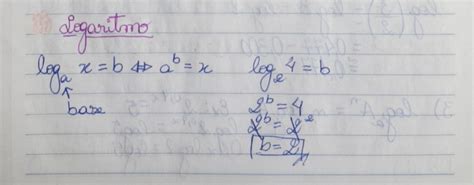 Logaritmo
logₐ x = b ⇔ aᵇ = x
base
log₂ 4 = b
2ᵇ = 4
2ᵇ = 2²
b = 2